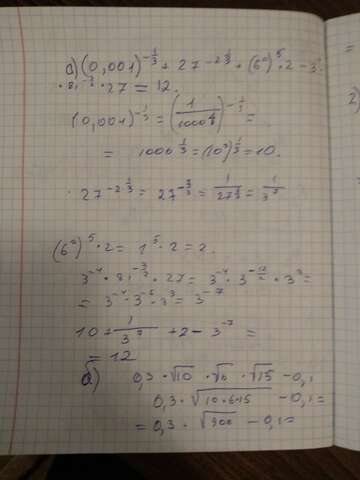 а) (0,001)^{-1/3} + 27^{-2 1/3} + (6^0)^5 · 2 - 3^{-4}
· 81^{-3/2} · 27 = 12.
(0,001)^{-1/3} = (1/1000)^{-1/3} =
= 1000^{1/3} = (10^3)^{1/3} = 10.
27^{-2 1/3} = 27^{-7/3} = 1/27^{7/3} = 1/3^7
(6^0)^5 · 2 = 1^5 · 2 = 2.
3^{-4} · 81^{-3/2} · 27 = 3^{-4} · 3^{-12/2} · 3^3 =
= 3^{-4} · 3^{-6} · 3^3 = 3^{-7}
10 + 1/3^7 + 2 - 3^{-7} =
= 12
б) 0,3 · √10 · √6 · √15 - 0,1
0,3 · √10·6·15 - 0,1 =
= 0,3 · √900 - 0,1 =
2)